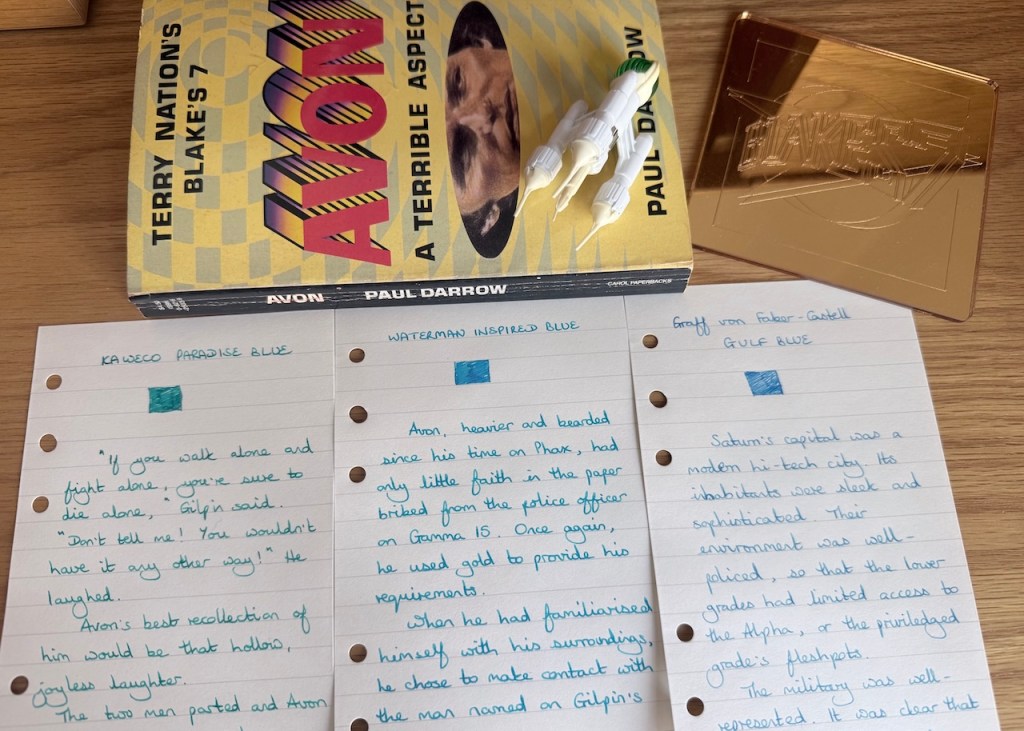 TERRY NATION'S
BLAKE'S 7
AVON
A TERRIBLE ASPECT
PAUL DARROW
AVON PAUL DARROW CAROL PAPERBACKS
KAWECO PARADISE BLUE
"If you walk alone and
fight alone, you're sure to
die alone," Gilpin said.
"Don't tell me! You wouldn't
have it any other way!" He
laughed.
Avon's best recollection of
him would be that hollow,
joyless laughter.
The two men parted and Avon
WATERMAN INSPIRED BLUE
Avon, heavier and bearded
since his time on Phax, had
only little faith in the paper
bribed from the police officer
on Gamma 15. Once again,
he used gold to provide his
requirements.
When he had familiarised
himself with his surroundings,
he chose to make contact with
the man named on Gilpin's
Graff von Faber-Castell
GULF BLUE
Saturn's capital was a
modern hi-tech city. Its
inhabitants were sleek and
sophisticated. Their
environment was well-
policed, so that the lower
grades had limited access to
the Alpha, or the priviledged
grade's fleshpots.
The military was well-
represented. It was clear that